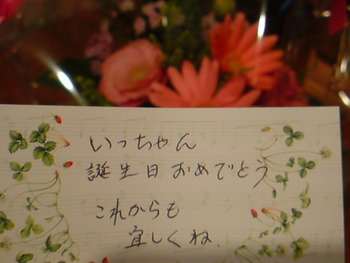 いっちゃん
誕生日おめでとう
これからも
宜しくね.